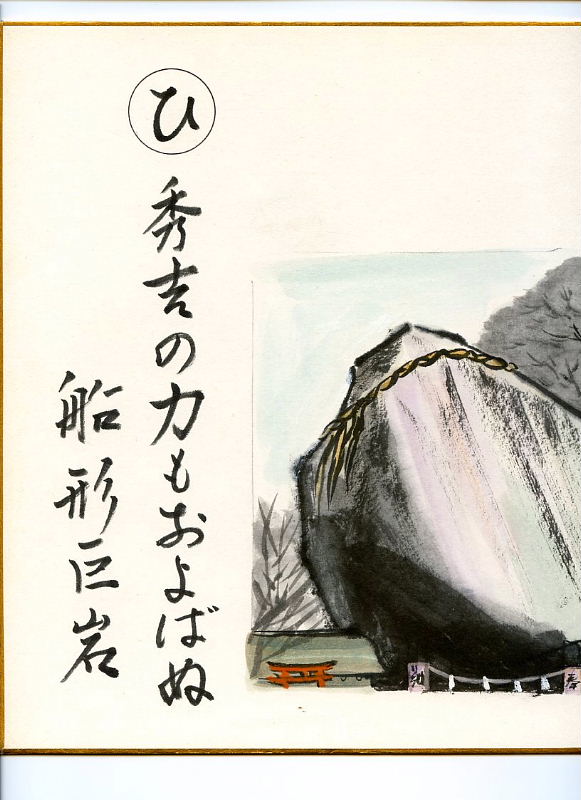 ひ
秀吉の力もおよばぬ
船形巨岩
奉